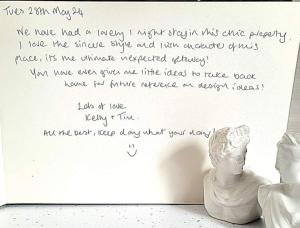 Tues 28th May 24
We have had a lovely 1 night stay in this chic property.
I love the sincere style and own character of this
place, its the ultimate unexpected getaway!
You have even given me little ideas to take back
home for future reference on design ideas!
Lots of love
Kelly + Tim
All the best, keep doing what your doing!
:)